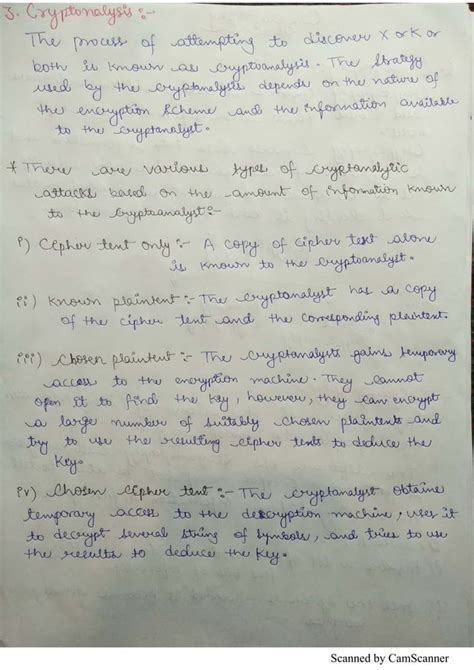 3. Cryptanalysis :-
The process of attempting to discover X or K or
both is known as cryptoanalysis. The strategy
used by the cryptanalysis depends on the nature of
the encryption scheme and the information available
to the cryptanalyst.
* There are various types of cryptanalytic
attacks based on the amount of information known
to the cryptoanalyst :-
i) Cipher text only :- A copy of cipher text alone
is known to the cryptoanalyst.
ii) Known plaintext :- The cryptanalyst has a copy
of the cipher text and the corresponding plaintext.
iii) Chosen plaintext :- The cryptanalysts gains temporary
access to the encryption machine. They cannot
open it to find the key, however, they can encrypt
a large number of suitably chosen plaintexts and
try to use the resulting cipher texts to deduce the
Key.
iv) Chosen cipher text :- The cryptanalyst obtains
temporary access to the decryption machine, uses it
to decrypt several string of symbols, and tries to use
the results to deduce the key.
Scanned by CamScanner